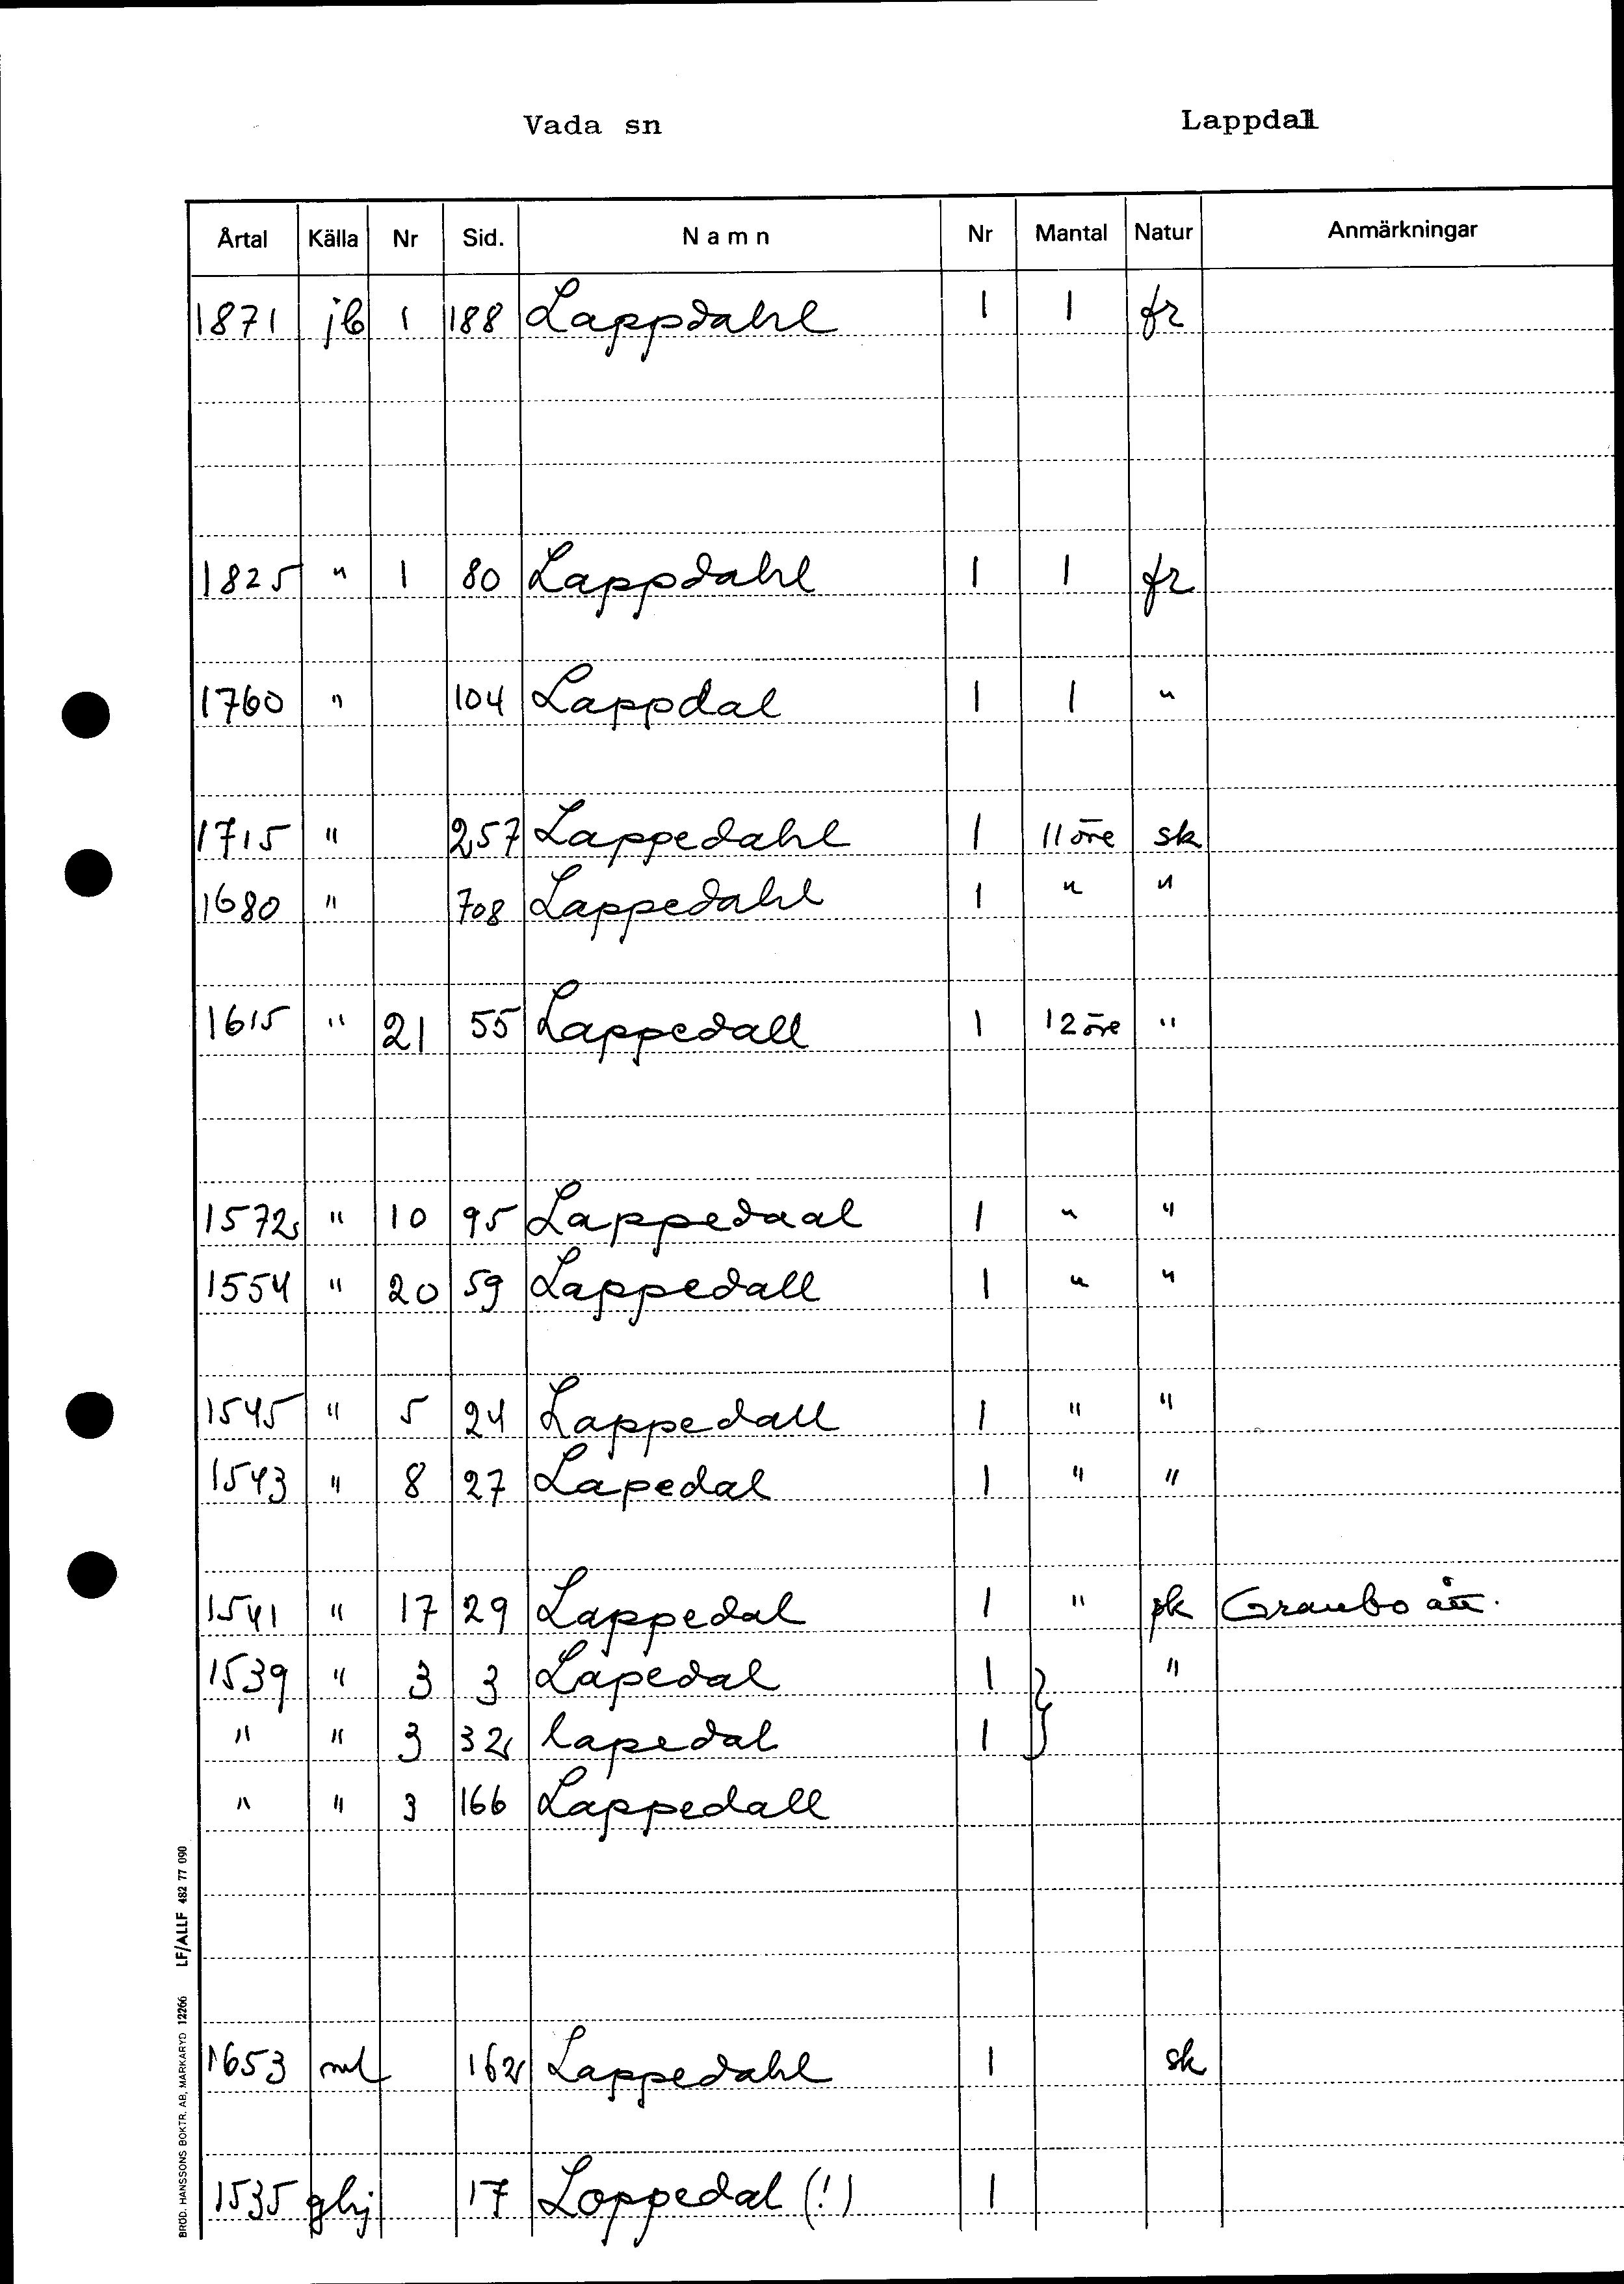 Vada sn Lappdal
Årtal Källa Nr Sid. Namn Nr Mantal Natur Anmärkningar
1871 jb 1 188 Lappdahl 1 1 fr
1825 " 1 80 Lappdahl 1 1 fr
1760 " 104 Lappdal 1 1 "
1715 " 257 Lappedahl 1 11 öre sk
1680 " 708 Lappedahl 1 " "
1615 " 21 55 Lappedall 1 12 öre "
1572 " 10 95 Lappedaal 1 " "
1554 " 20 59 Lappedall 1 " "
1545 " 5 24 Lappedall 1 " "
1543 " 8 27 Lapedal 1 " "
1541 " 17 29 Lappedal 1 " sk Granbo ått.
1539 " 3 3 Lapedal 1 } "
" " 3 32 lapedal 1
" " 3 166 Lappedall
1653 ml 162 Lappedahl 1 sk
1535 ghj 17 Loppedal (!) 1
BRÖD. HANSSONS BOKTR. AB, MARKARYD 12266 LF/ALLF 482 77 090